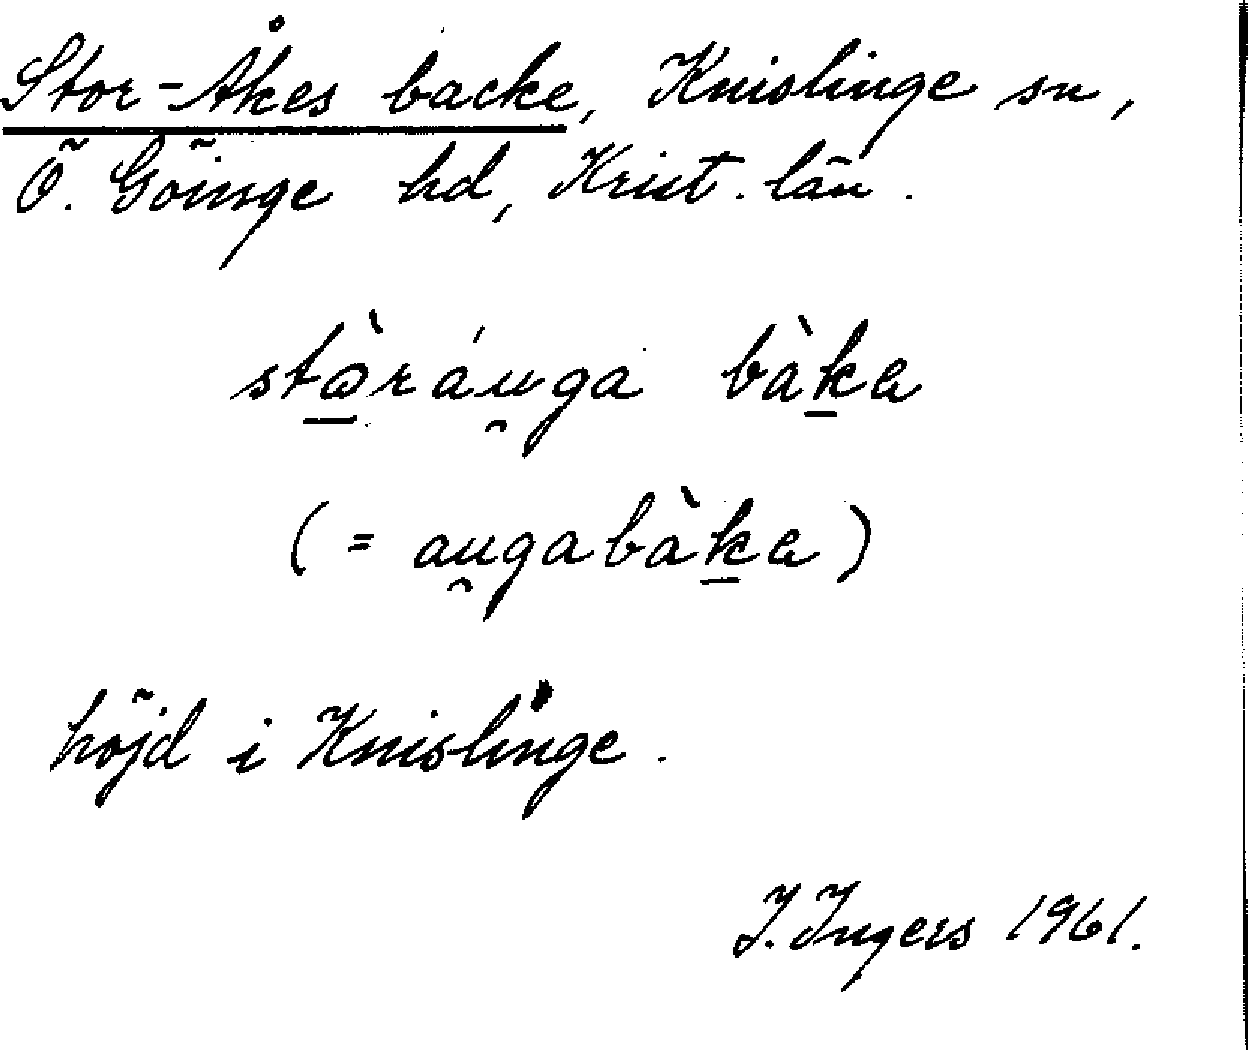 Stor-Åkes backe, Knislinge sn,
Ö. Göinge hd, Krist. län.
stɷ̱̀ráu̯ga bàḵa
(= au̯gabàḵa)
höjd i Knislinge.
I. Ingers 1961.